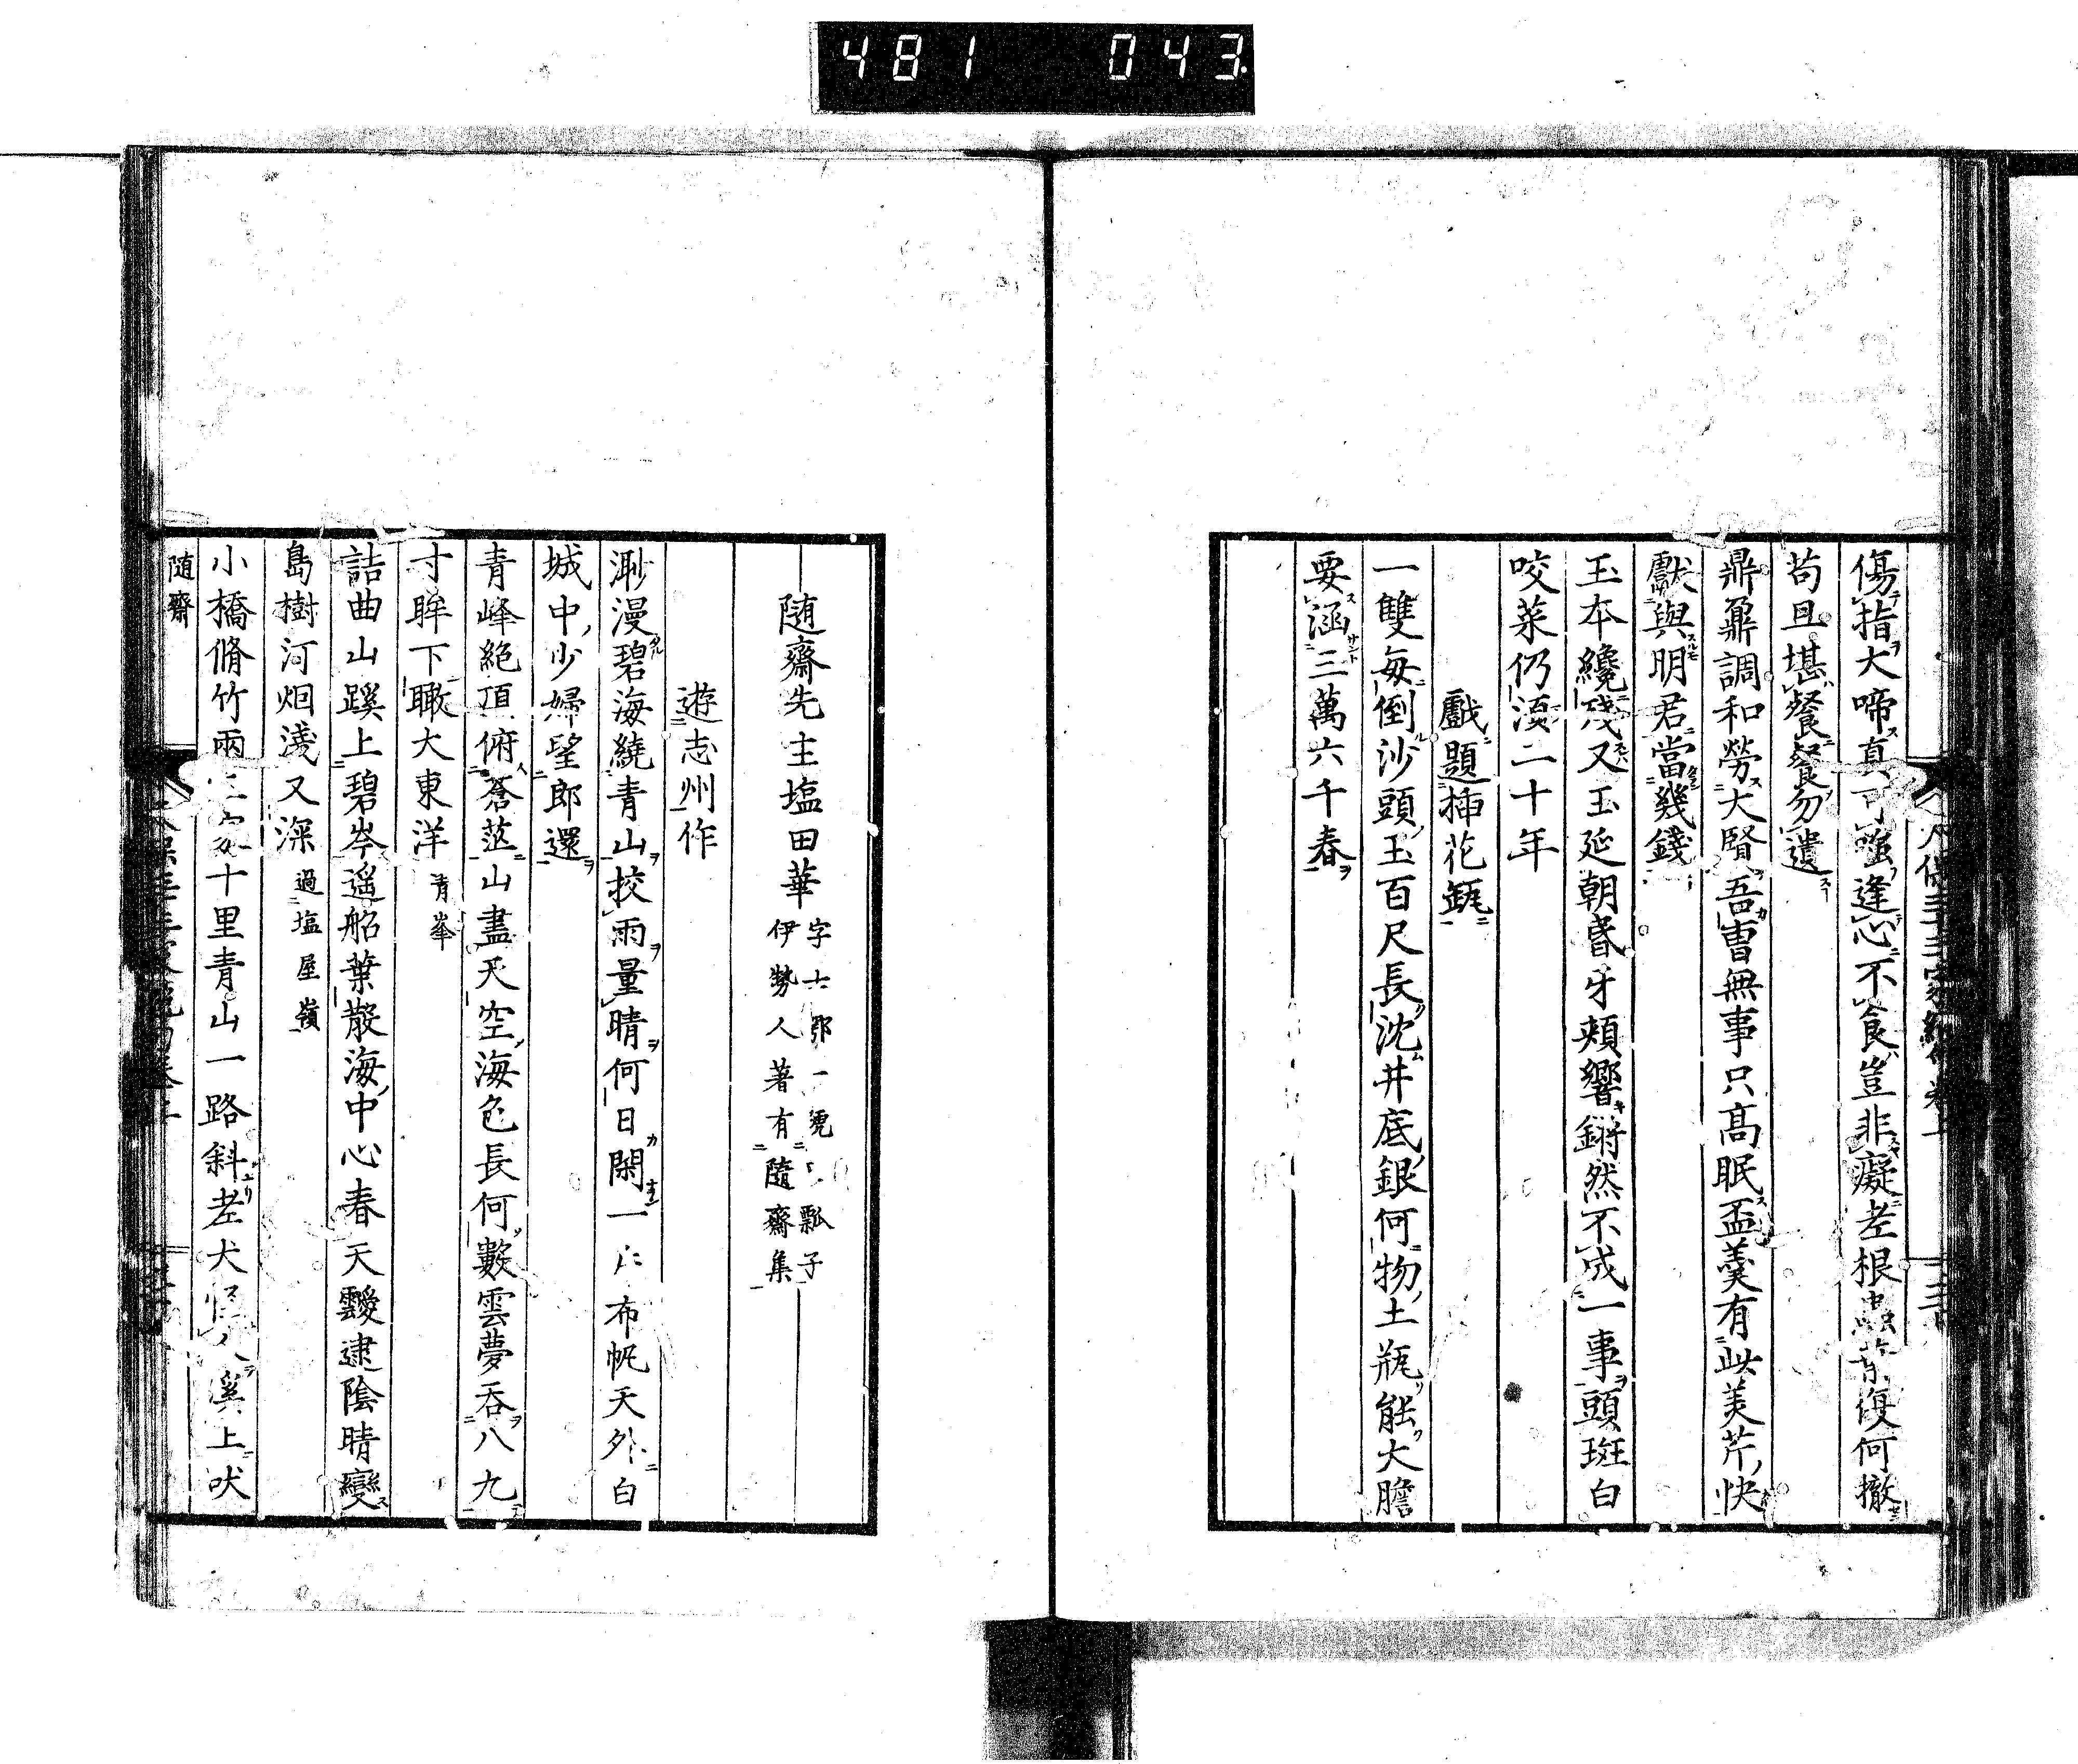 481 043
傷指大啼真可嗤逢心不食豈非癡老根虫復何撤
苟且堪餐餐勿遺
鼎鼐調和勞大賢吾曹無事只高眠盃羹有此美芹快
獻與明君當幾錢
玉本纔殘又玉延朝昏牙頰響鏘然不成一事頭斑白
咬菜仍須二十年
戲題挿花瓶
一雙每倒沙頭玉百尺長沈井底銀何物土瓶能大膽
要涵三萬六千春
隨齋先生塩田華
字士鄂一號瓢子
伊勢人著有隨齋集
遊志州作
渺漫碧海繞青山挍雨量晴何日閑一布帆天外白
城中少婦望郎還
青峰絶頂俯蒼茫山盡天空海色長何數雲夢呑八九
寸眸下瞰大東洋 青峯
詰曲山蹊上碧岑遥船葉散海中心春天靉逮陰晴變
島樹河烟淺又深 過塩屋嶺
小橋脩竹兩三家十里青山一路斜老犬怪人溪上吠
隨齋